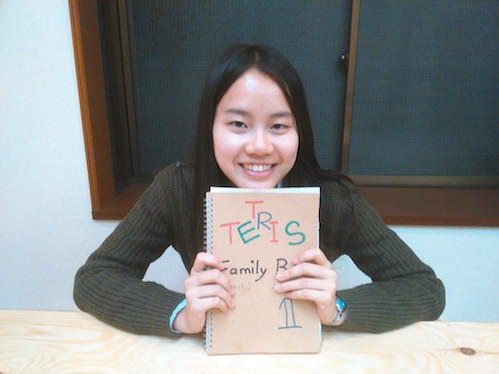 TETRIS
Family B
1